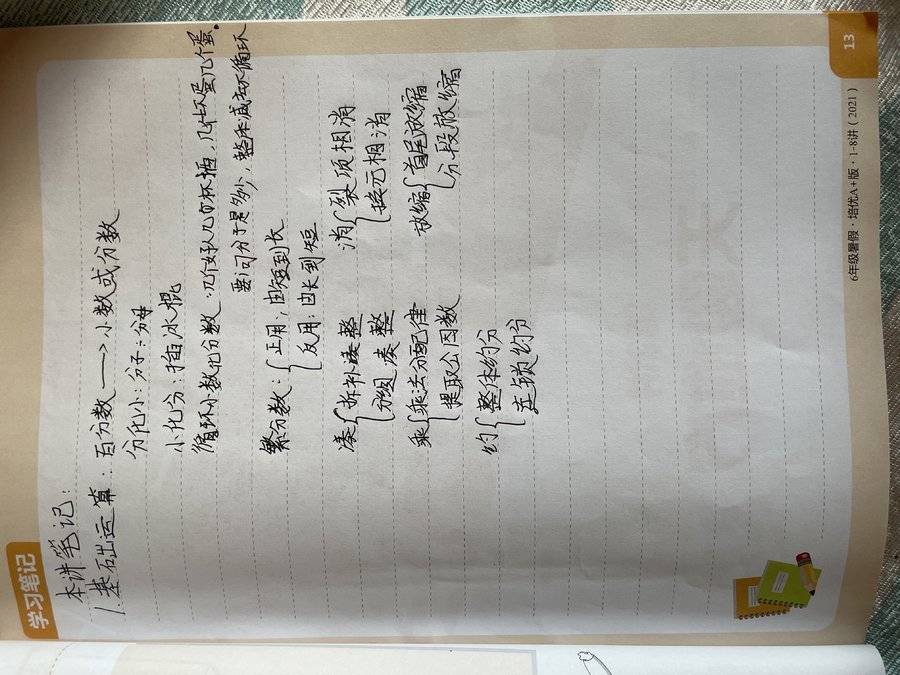 学习笔记
本讲笔记:
1.基础运算:百分数→小数或分数
分化小:分子÷分母
小化分:插冰棍
循环小数化分数:几个好人几百杯酒,几个坏蛋几个蛋.
要问分子是多少,整体减去不循环
繁分数:{正用:由短到长
反用:由长到短
凑{拆补凑整 消{裂项相消
分组凑整 换元相消
乘{乘法分配律 放缩{首尾放缩
提取公因数 分段放缩
约{整体约分
连锁约分
6年级暑假·培优A+版·1-8讲(2021)
13